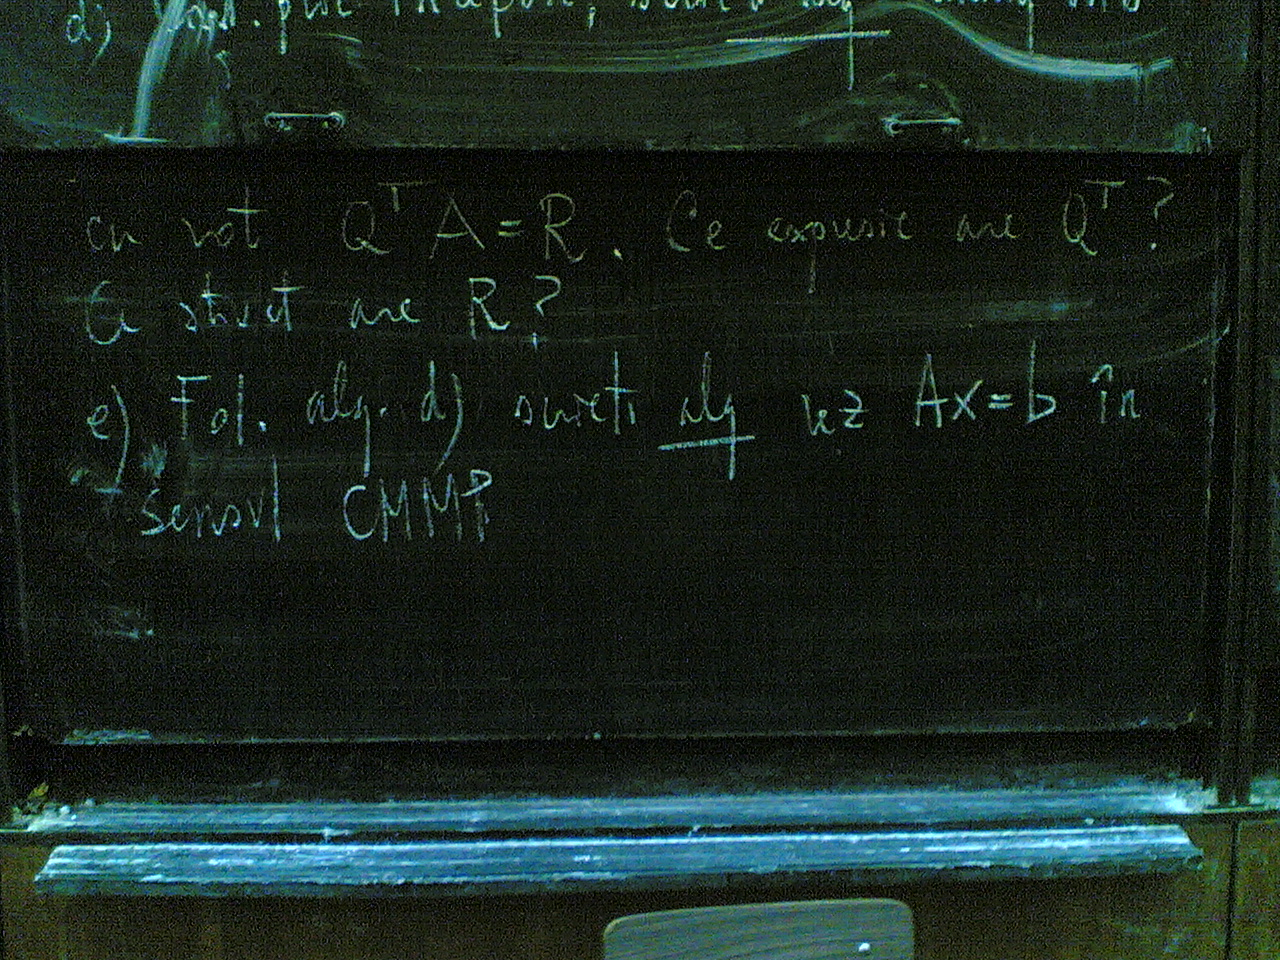 d)
cu not Q^T A = R. Ce expresie are Q^T?
Ce struct are R?
e) Fol. alg. d) scrieti alg rez Ax=b în
sensul CMMP